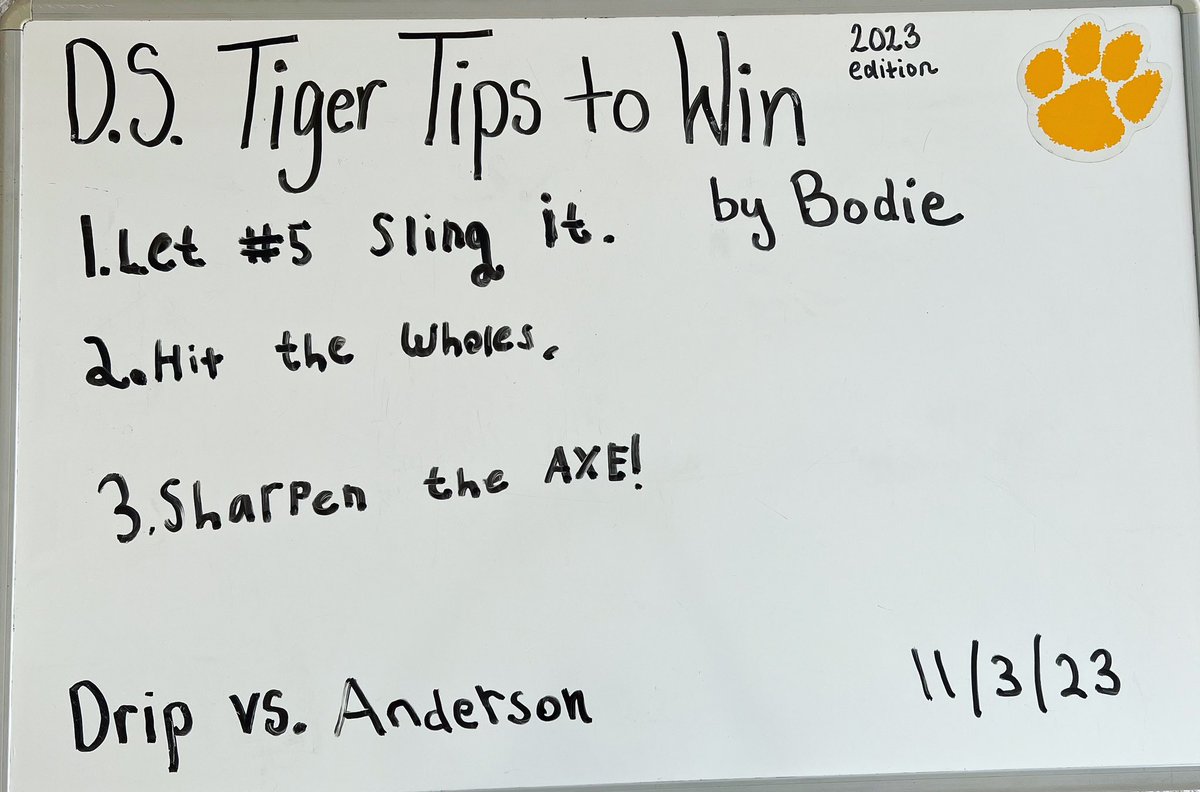 D.S. Tiger Tips to Win
2023
edition
by Bodie
1. Let #5 Sling it.
2. Hit the Wholes.
3. Sharpen the AXE!
Drip vs. Anderson
11/3/23